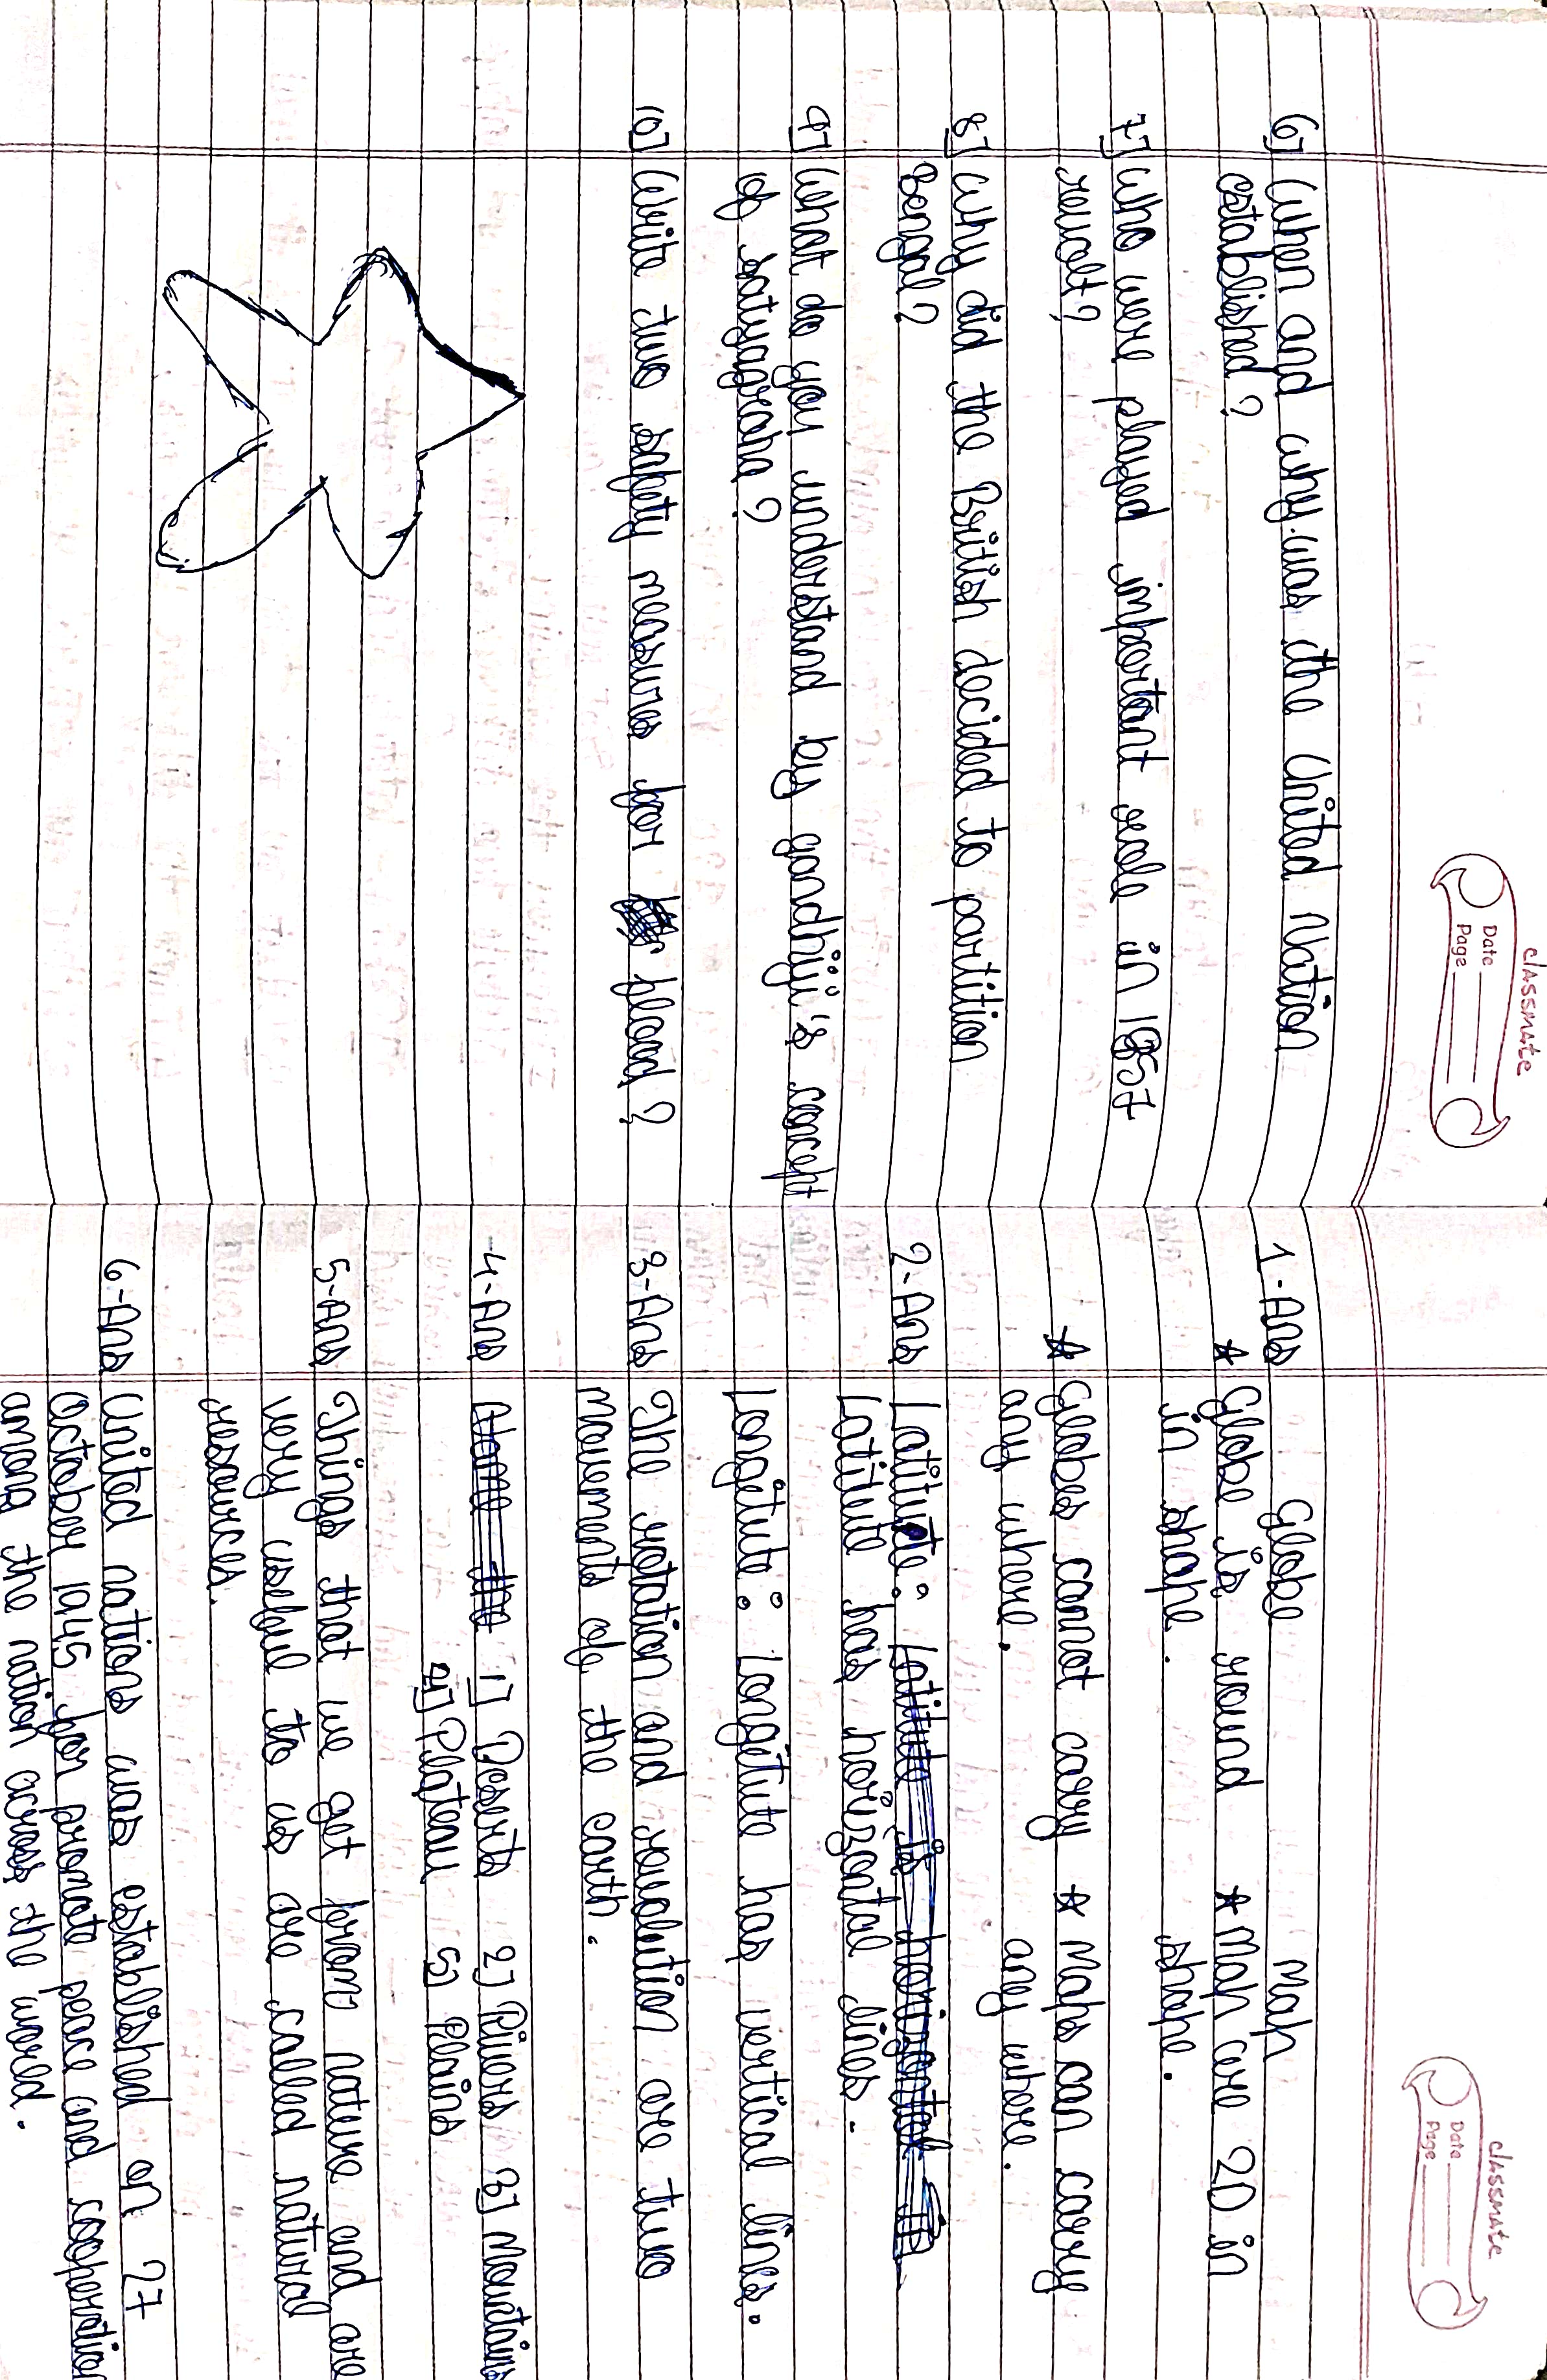 classmate
Date
Page
6] When and why was the United Nation
established?
7] Who were played important role in 1857
revolt?
8] Why did the British decided to partition
Bengal?
9] What do you understand by gandhiji's concept
of satyagraha?
10] Write two safety measures for flood?
classmate
Date
Page
1-Ans Globe Map
★ Globe is round ★ Map are 2D in
in shape. shape.
★ Globes cannot carry ★ Maps can carry
any where. any where.
2-Ans Latitute: Latitute is horizontal
Latitute has horizontal lines.
Longitute: Longitute has vertical lines.
3-Ans The rotation and revolution are two
movements of the earth.
4-Ans Name the 1] Deserts 2] Rivers 3] Mountains
4] Plateau 5] Plains
5-Ans Things that we get from nature and are
very useful to us are called natural
resources.
6-Ans United nations was established on 27
October 1945 for promote peace and cooperation
among the nation across the world.